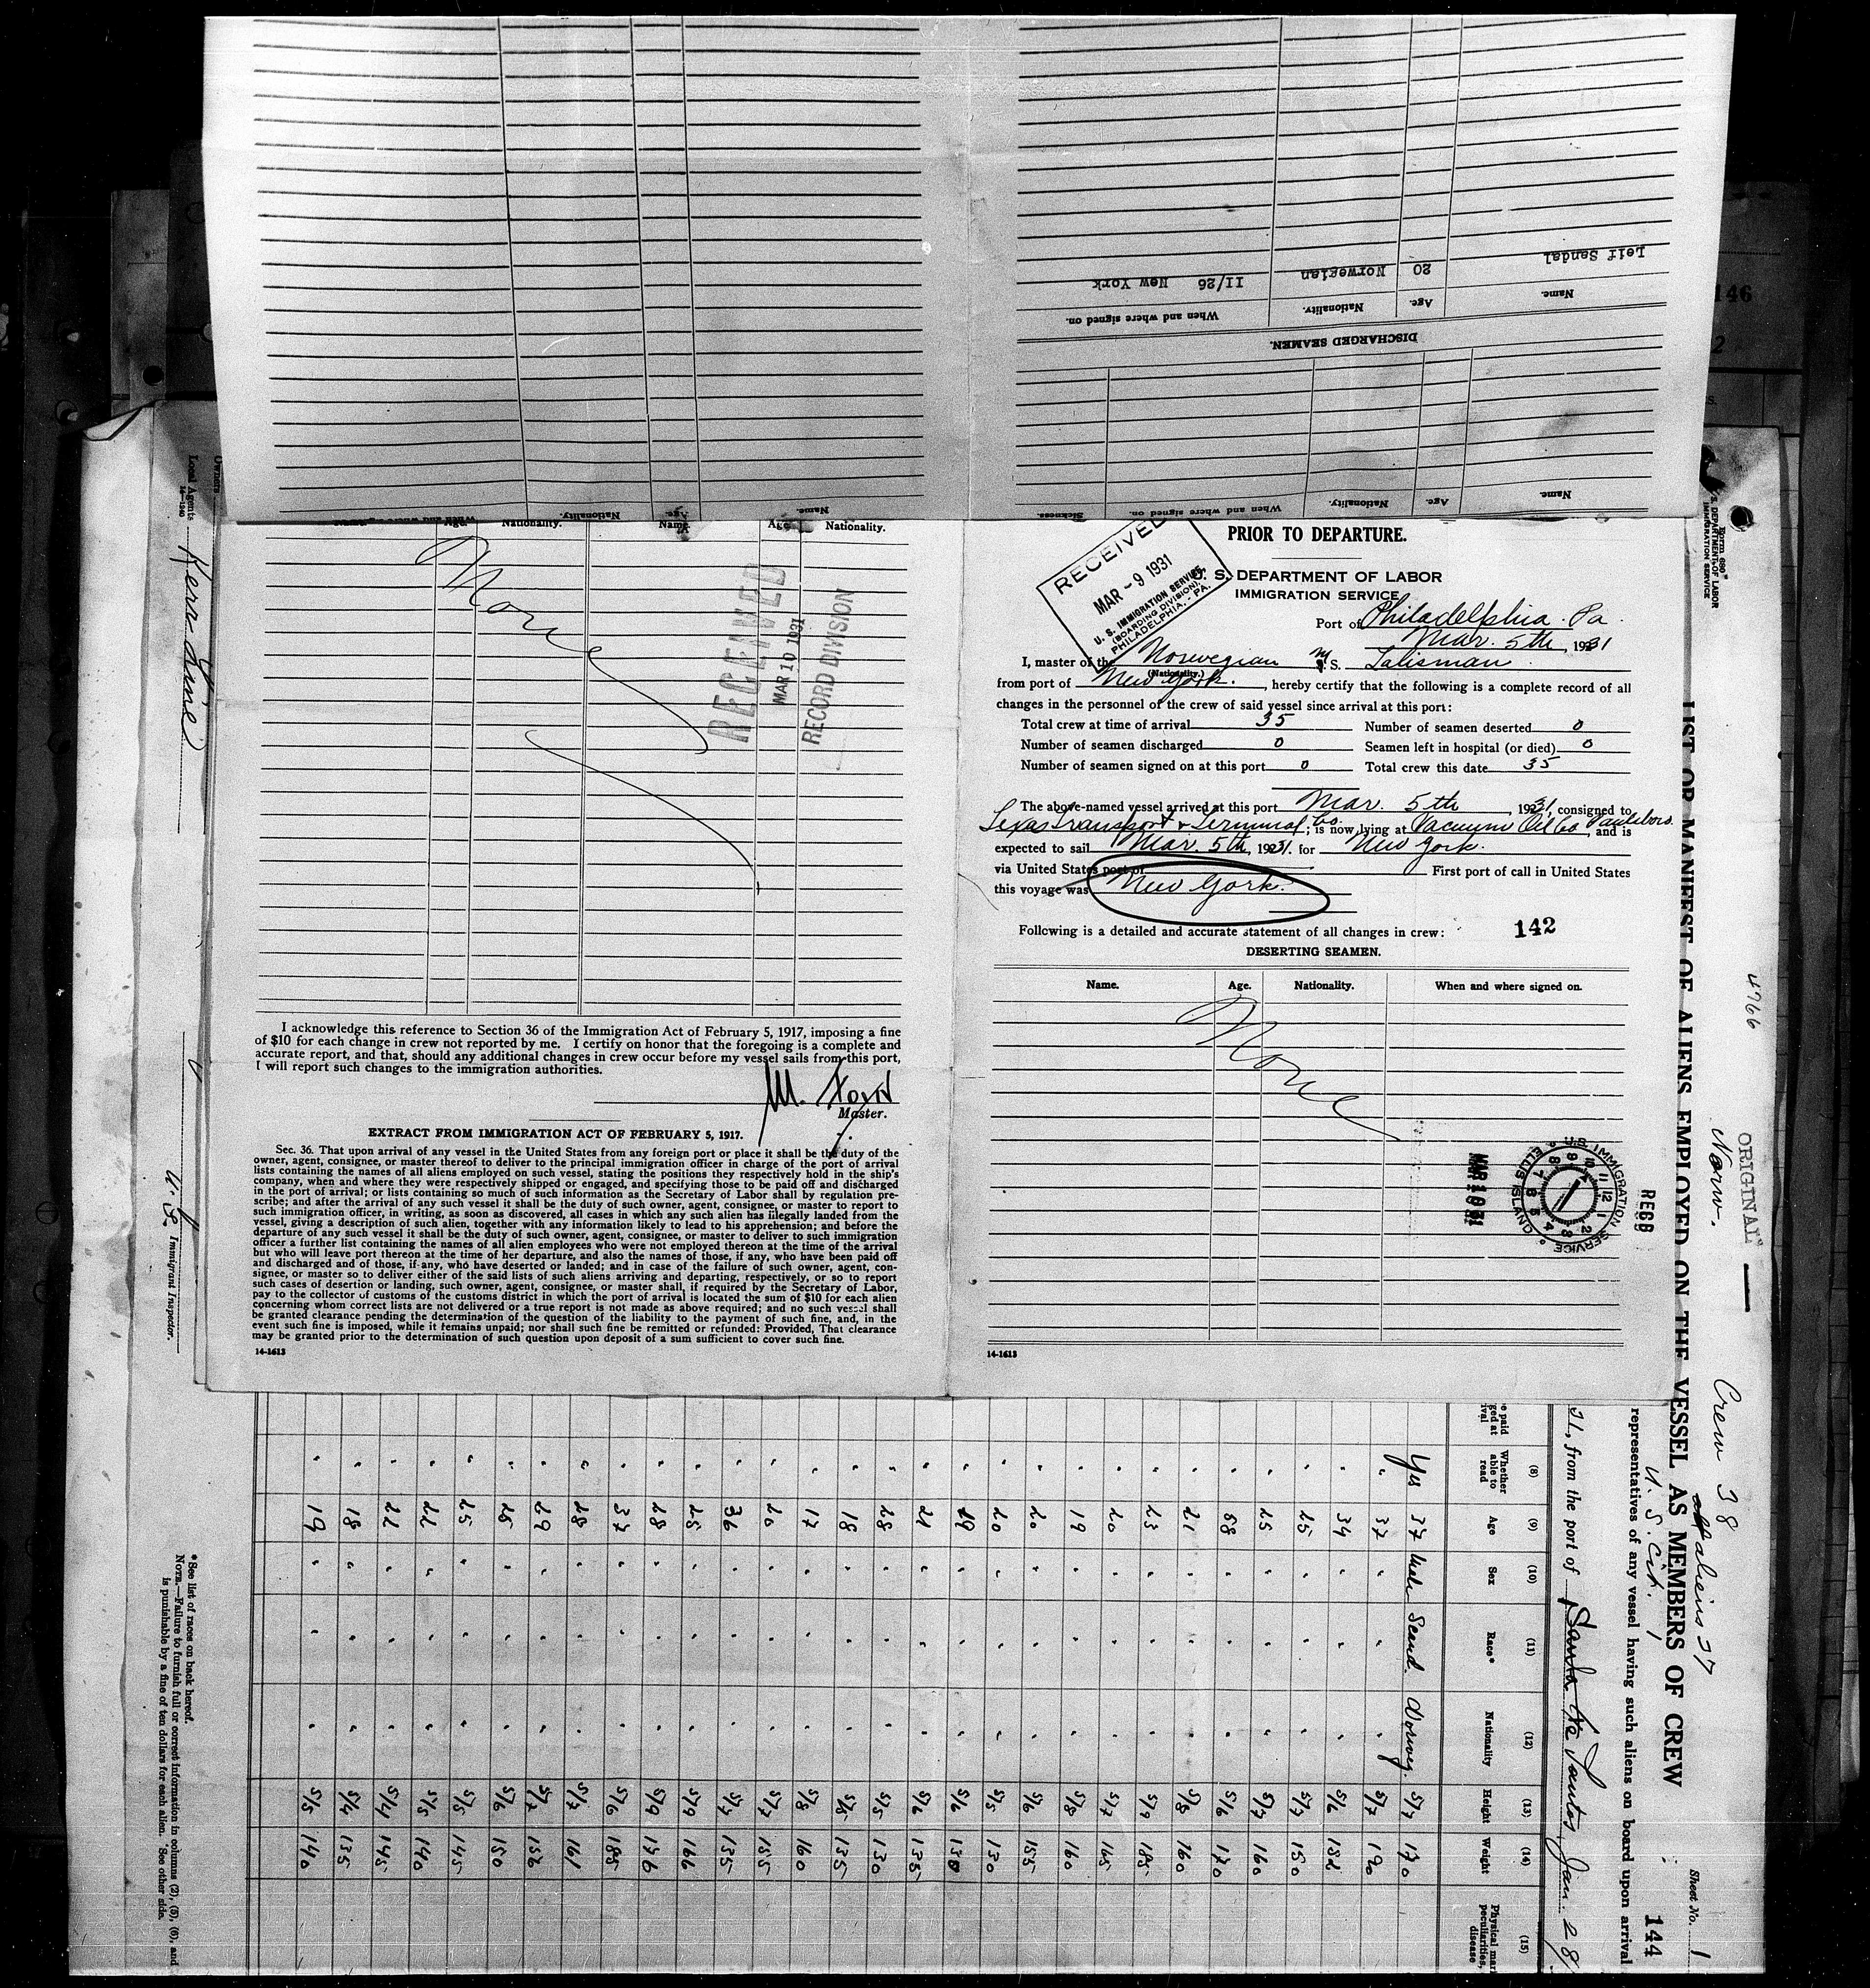 Name. Age. Nationality. When and where signed on.
Leif Sandal 20 Norwegian II/26 New York
DISCHARGED SEAMEN.
Name. Age. Nationality. When and where signed on. Sickness.
Name. Age.
146
2
Owners
Local Agents Kerr Line
14-1240
U.S. Immigrant Inspector.
Age. Nationality. Name. Age. Nationality.
None
RECEIVED
MAR 10 1931
RECORD DIVISION
I acknowledge this reference to Section 36 of the Immigration Act of February 5, 1917, imposing a fine
of $10 for each change in crew not reported by me. I certify on honor that the foregoing is a complete and
accurate report, and that, should any additional changes in crew occur before my vessel sails from this port,
I will report such changes to the immigration authorities.
Master.
EXTRACT FROM IMMIGRATION ACT OF FEBRUARY 5, 1917.
Sec. 36. That upon arrival of any vessel in the United States from any foreign port or place it shall be the duty of the
owner, agent, consignee, or master thereof to deliver to the principal immigration officer in charge of the port of arrival
lists containing the names of all aliens employed on such vessel, stating the positions they respectively hold in the ship's
company, when and where they were respectively shipped or engaged, and specifying those to be paid off and discharged
in the port of arrival; or lists containing so much of such information as the Secretary of Labor shall by regulation pre-
scribe; and after the arrival of any such vessel it shall be the duty of such owner, agent, consignee, or master to report to
such immigration officer, in writing, as soon as discovered, all cases in which any such alien has illegally landed from the
vessel, giving a description of such alien, together with any information likely to lead to his apprehension; and before the
departure of any such vessel it shall be the duty of such owner, agent, consignee, or master to deliver to such immigration
officer a further list containing the names of all alien employees who were not employed thereon at the time of the arrival
but who will leave port thereon at the time of her departure, and also the names of those, if any, who have been paid off
and discharged and of those, if any, who have deserted or landed; and in case of the failure of such owner, agent, con-
signee, or master so to deliver either of the said lists of such aliens arriving and departing, respectively, or so to report
such cases of desertion or landing, such owner, agent, consignee, or master shall, if required by the Secretary of Labor,
pay to the collector of customs of the customs district in which the port of arrival is located the sum of $10 for each alien
concerning whom correct lists are not delivered or a true report is not made as above required; and no such vessel shall
be granted clearance pending the determination of the question of the liability to the payment of such fine, and, in the
event such fine is imposed, while it remains unpaid; nor shall such fine be remitted or refunded: Provided, That clearance
may be granted prior to the determination of such question upon deposit of a sum sufficient to cover such fine.
14-1613
PRIOR TO DEPARTURE.
RECEIVED
MAR - 9 1931
U. S. IMMIGRATION SERVICE,
(BOARDING DIVISION),
PHILADELPHIA, - PA.
U. S. DEPARTMENT OF LABOR
IMMIGRATION SERVICE
Port of Philadelphia. Pa.
Mar. 5th, 1931
I, master of the Norwegian M S. Talisman
(Nationality.)
from port of New York., hereby certify that the following is a complete record of all
changes in the personnel of the crew of said vessel since arrival at this port:
Total crew at time of arrival 35 Number of seamen deserted 0
Number of seamen discharged 0 Seamen left in hospital (or died) 0
Number of seamen signed on at this port 0 Total crew this date 35
The above-named vessel arrived at this port Mar. 5th, 1931, consigned to
Texas Transport & Terminal Co.; is now lying at Vacuum Oil Co Paulsboro, and is
expected to sail Mar. 5th, 1931. for New York.
via United States port of First port of call in United States
this voyage was New York.
Following is a detailed and accurate statement of all changes in crew: 142
DESERTING SEAMEN.
Name. Age. Nationality. When and where signed on.
None
MAR 10 31
U.S. IMMIGRATION SERVICE
ELLIS ISLAND
REGD
14-1613
Form 680
U. S. DEPARTMENT OF LABOR
IMMIGRATION SERVICE
4766
ORIGINAL
Norw.
Crew 38
aliens 37
U. S. Cit. 1
Sheet No. 1
144
LIST OR MANIFEST OF ALIENS EMPLOYED ON THE VESSEL AS MEMBERS OF CREW
representatives of any vessel having such aliens on board upon arrival
31, from the port of Santa Fe Santos, Jan. 28
(8) (9) (10) (11) (12) (13) (14) (15)
Whether able to read Age Sex Race* Nationality Height Weight Physical peculiarities, disease
Yes 37 Male Scand. Norweg. 5/7 170
" 37 " " " 5/7 190
" 34 " " " 5/6 182
" 25 " " " 5/7 150
" 25 " " " 5/7 160
" 58 " " " 5/6 170
" 21 " " " 5/8 160
" 23 " " " 5/9 185
" 20 " " " 5/7 165
" 19 " " " 5/8 160
" 20 " " " 5/6 155
" 20 " " " 5/5 130
" 19 " " " 5/6 130
" 21 " " " 5/6 135
" 28 " " " 5/5 130
" 18 " " " 5/5 135
" 17 " " " 5/8 160
" 20 " " " 5/7 155
" 36 " " " 5/7 135
" 25 " " " 5/9 166
" 28 " " " 5/9 176
" 37 " " " 5/6 185
" 28 " " " 5/7 161
" 29 " " " 5/7 156
" 25 " " " 5/6 150
" 25 " " " 5/5 145
" 22 " " " 5/5 140
" 22 " " " 5/4 145
" 18 " " " 5/4 135
" 19 " " " 5/5 140
*See list of races on back hereof.
NOTE.—Failure to furnish full or correct information in columns (2), (5), (6), and
is punishable by a fine of ten dollars for each alien. See other side.